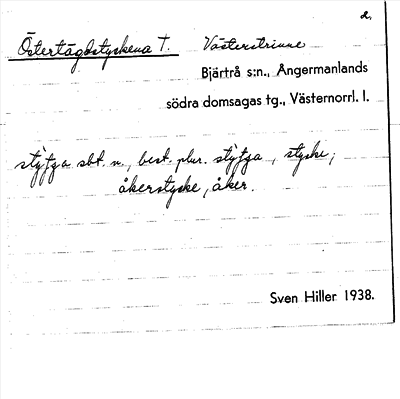 2.
Östertägdstyckena T. Västerstrinne
Bjärtrå s:n., Ångermanlands
södra domsagas tg., Västernorrl. l.
sbt. n., best. plur. stycke;
åkerstycke, åker.
Sven Hiller 1938.